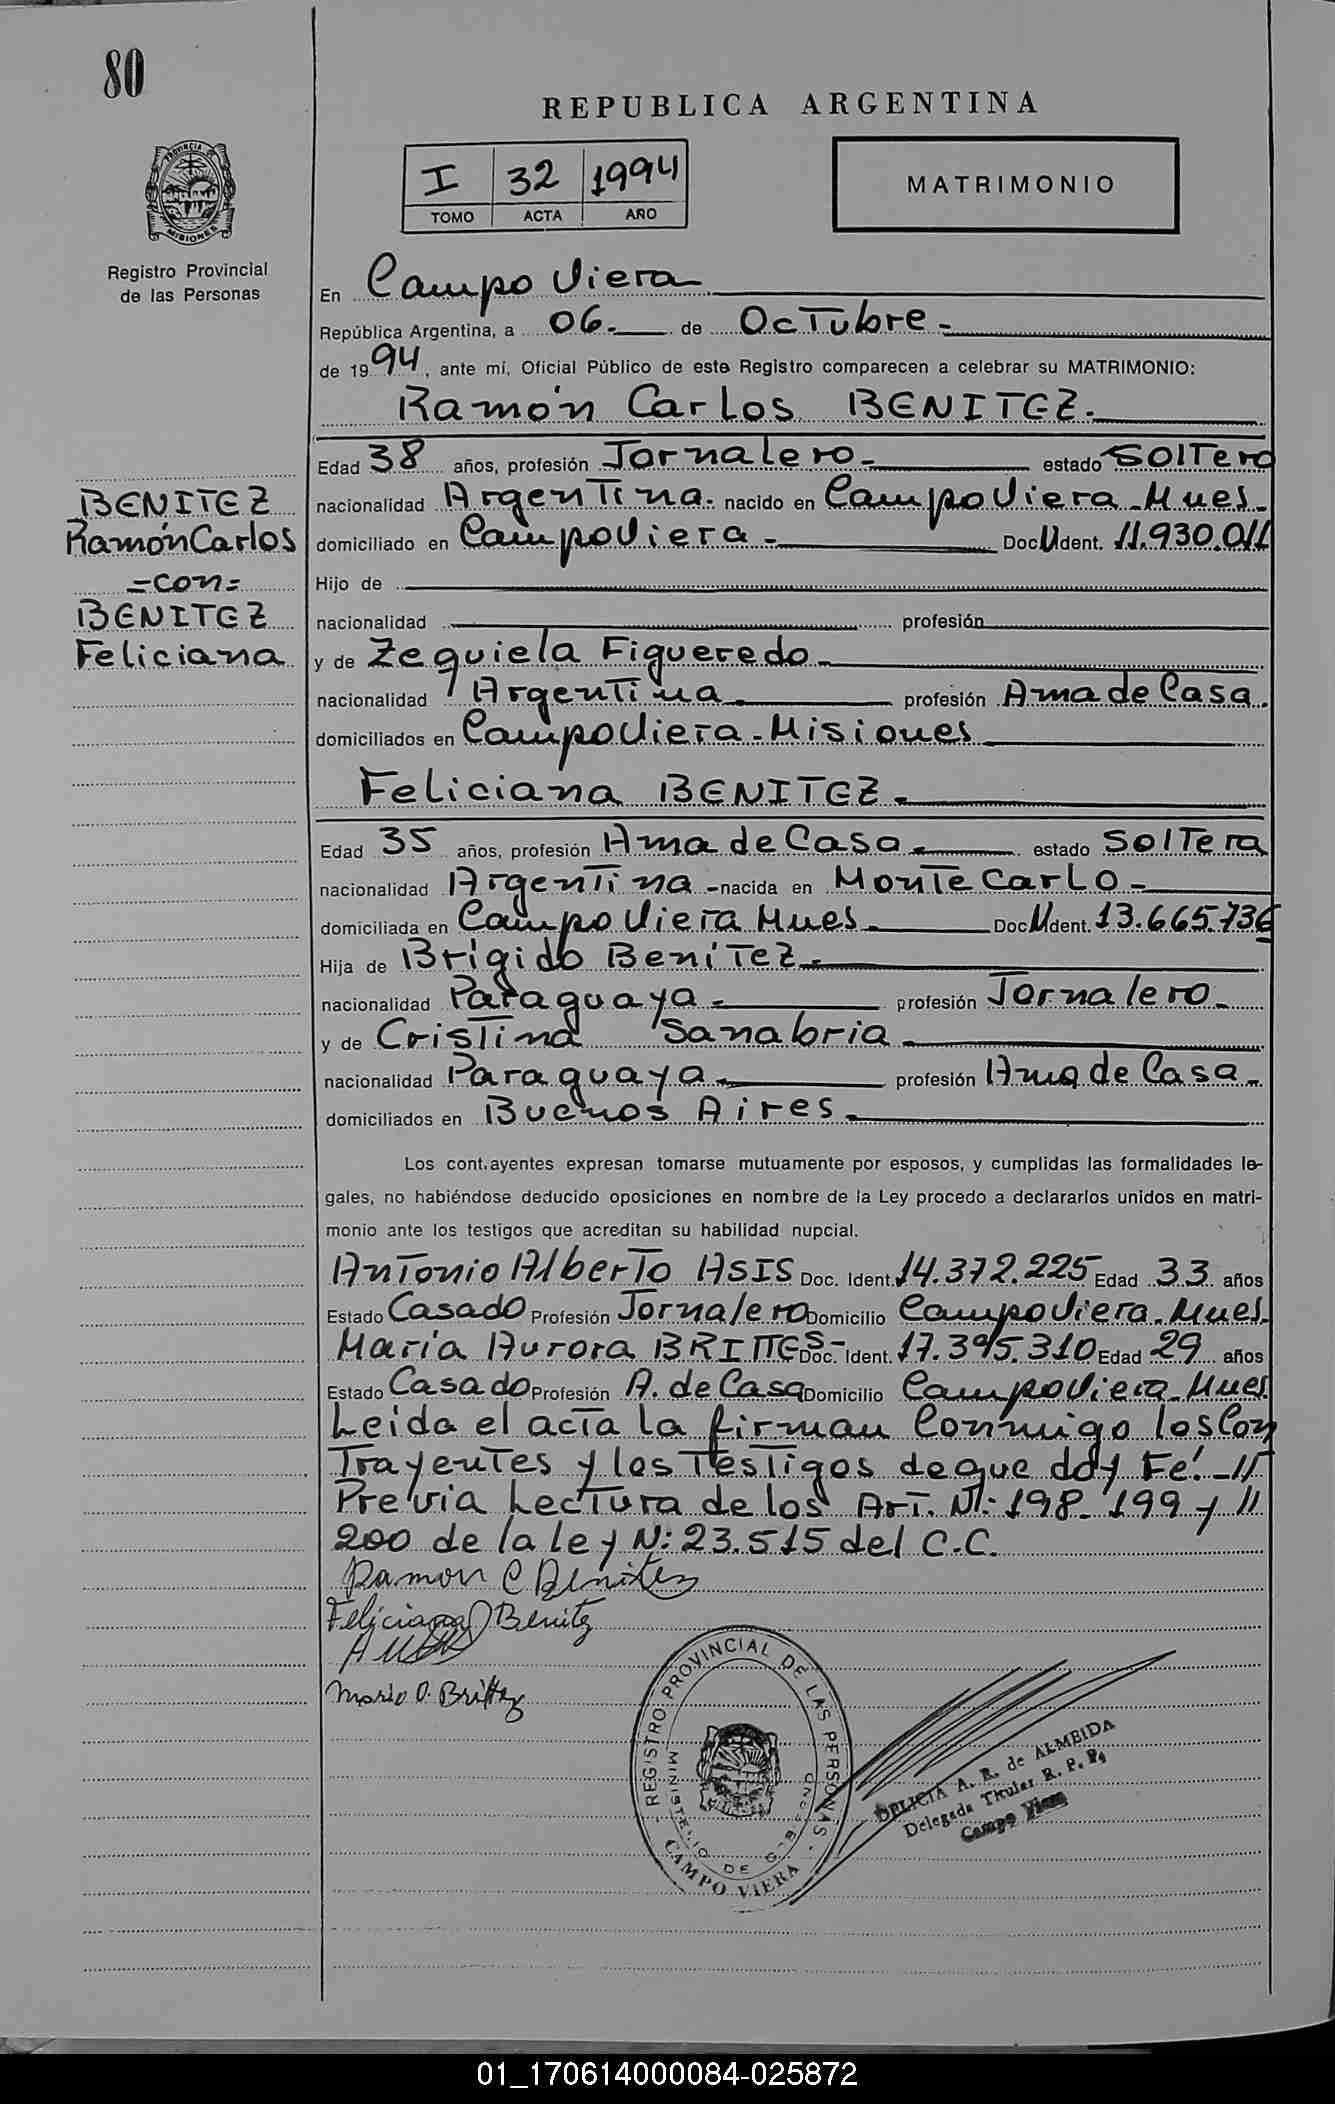 80
REPUBLICA ARGENTINA
PROVINCIA
MISIONES
Registro Provincial
de las Personas
I 32 1994
TOMO ACTA AÑO
MATRIMONIO
En Campo Viera
República Argentina, a 06. de Octubre.
de 1994, ante mí, Oficial Público de este Registro comparecen a celebrar su MATRIMONIO:
Ramón Carlos BENITEZ.
Edad 38 años, profesión Jornalero. estado Soltero
nacionalidad Argentina. nacido en Campo Viera. Mnes.
domiciliado en Campo Viera. Doc. Ident. 11.930.011
Hijo de
nacionalidad profesión
y de Zequiela Figueredo.
nacionalidad Argentina. profesión Ama de Casa.
domiciliados en Campo Viera. Misiones
BENITEZ
Ramón Carlos
=con=
BENITEZ
Feliciana
Feliciana BENITEZ.
Edad 35 años, profesión Ama de Casa. estado Soltera
nacionalidad Argentina - nacida en Monte Carlo.
domiciliada en Campo Viera Mnes. Doc. Ident. 13.665.736
Hija de Brígido Benítez.
nacionalidad Paraguaya. profesión Jornalero.
y de Cristina Sanabria.
nacionalidad Paraguaya. profesión Ama de Casa.
domiciliados en Buenos Aires.
Los cont.ayentes expresan tomarse mutuamente por esposos, y cumplidas las formalidades le-
gales, no habiéndose deducido oposiciones en nombre de la Ley procedo a declararlos unidos en matri-
monio ante los testigos que acreditan su habilidad nupcial.
Antonio Alberto ASIS Doc. Ident. 14.372.225 Edad 33 años
Estado Casado Profesión Jornalero Domicilio Campo Viera. Mnes.
María Aurora BRITTES- Doc. Ident. 17.395.310 Edad 29 años
Estado Casado Profesión A. de Casa Domicilio Campo Viera. Mnes.
Leida el acta la firman Conmigo los Con
Trayentes y los Testigos de que doy Fé. - //
Previa Lectura de los Art. Nº: 198. 199 y //
200 de la ley N: 23.515 del C.C.
Ramon C Benitez
Feliciana Benitez
REGISTRO PROVINCIAL DE LAS PERSONAS
MINISTERIO DE GOBIERNO
CAMPO VIERA
DELICIA A. R. de ALMEIDA
Delegada Titular R. P. P.
Campo Viera
01_170614000084-025872